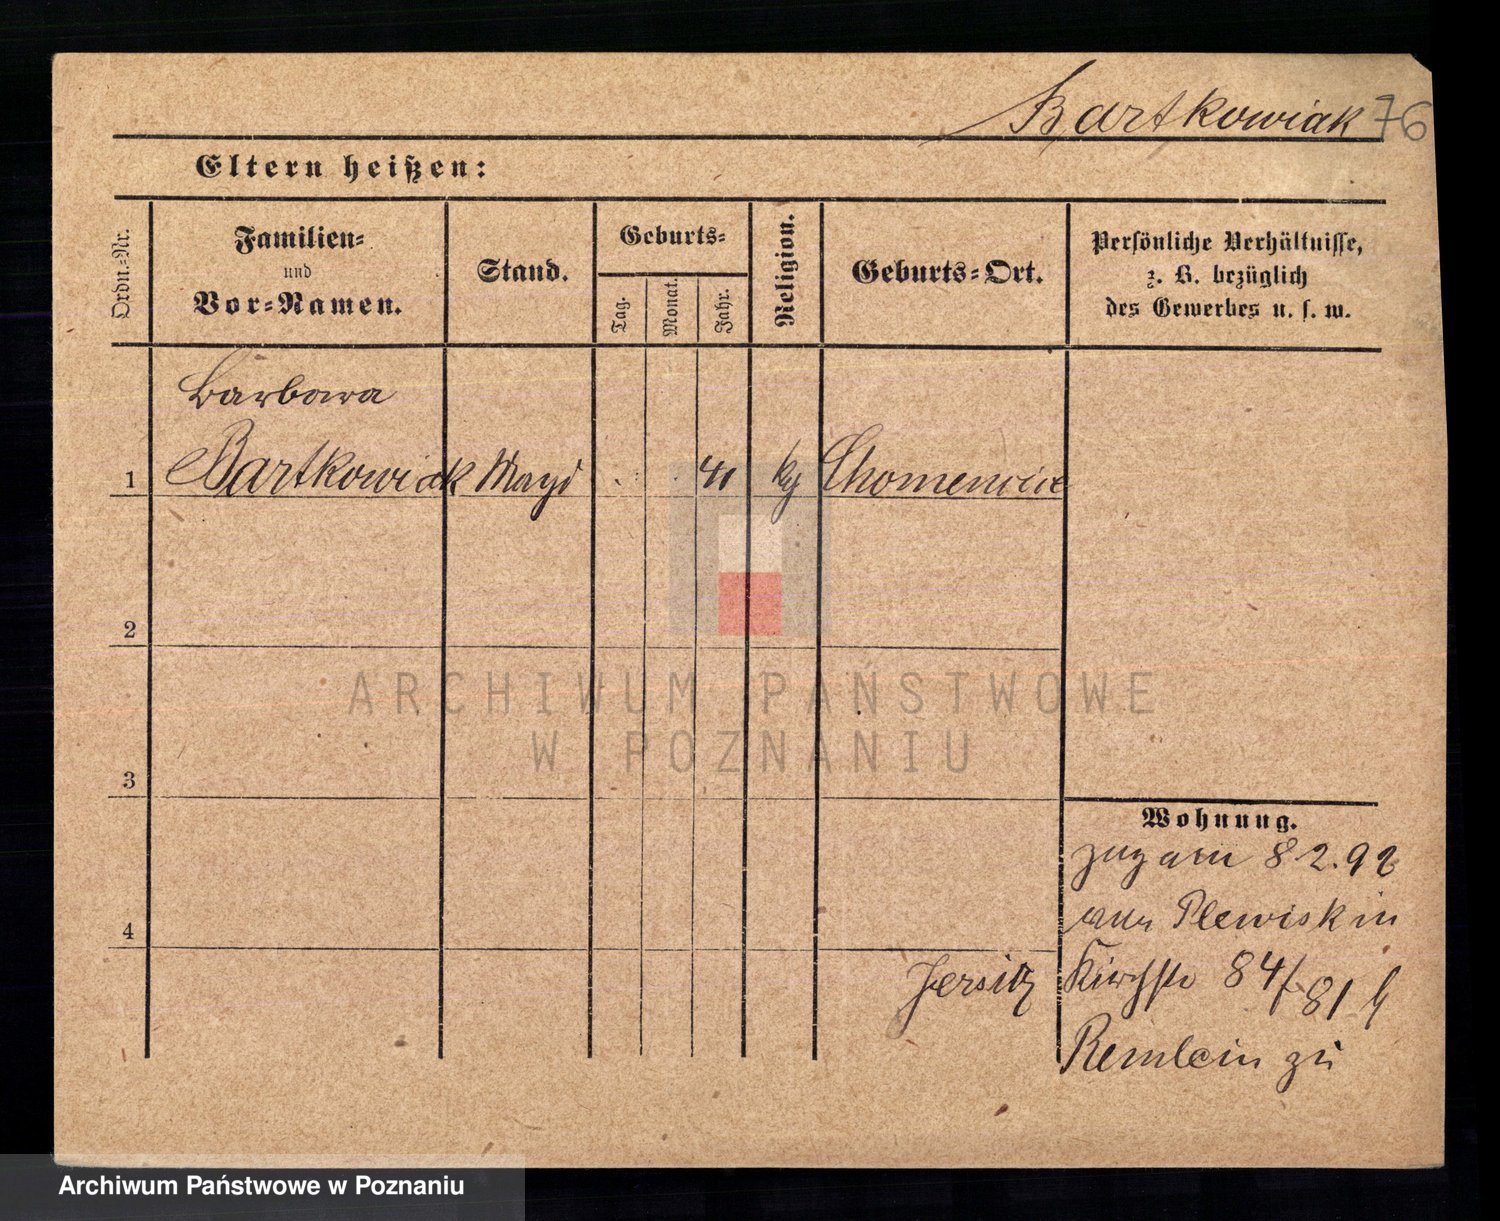 Bartkowiak 76
Eltern heißen:
Ordn.-Nr.
Familien-
und
Vor-Namen.
Stand.
Geburts-
Tag.
Monat.
Jahr.
Religion.
Geburts-Ort.
Persönliche Verhältnisse,
z. B. bezüglich
des Gewerbes u. s. w.
Barbara
1 Bartkowiak Magd 41 Chomencice
2
ARCHIWUM PAŃSTWOWE
W POZNANIU
3
Wohnung.
8.2.92
aus Plewisk in
4
Jersitz Kirchstr 84/81 b
zu
Archiwum Państwowe w Poznaniu